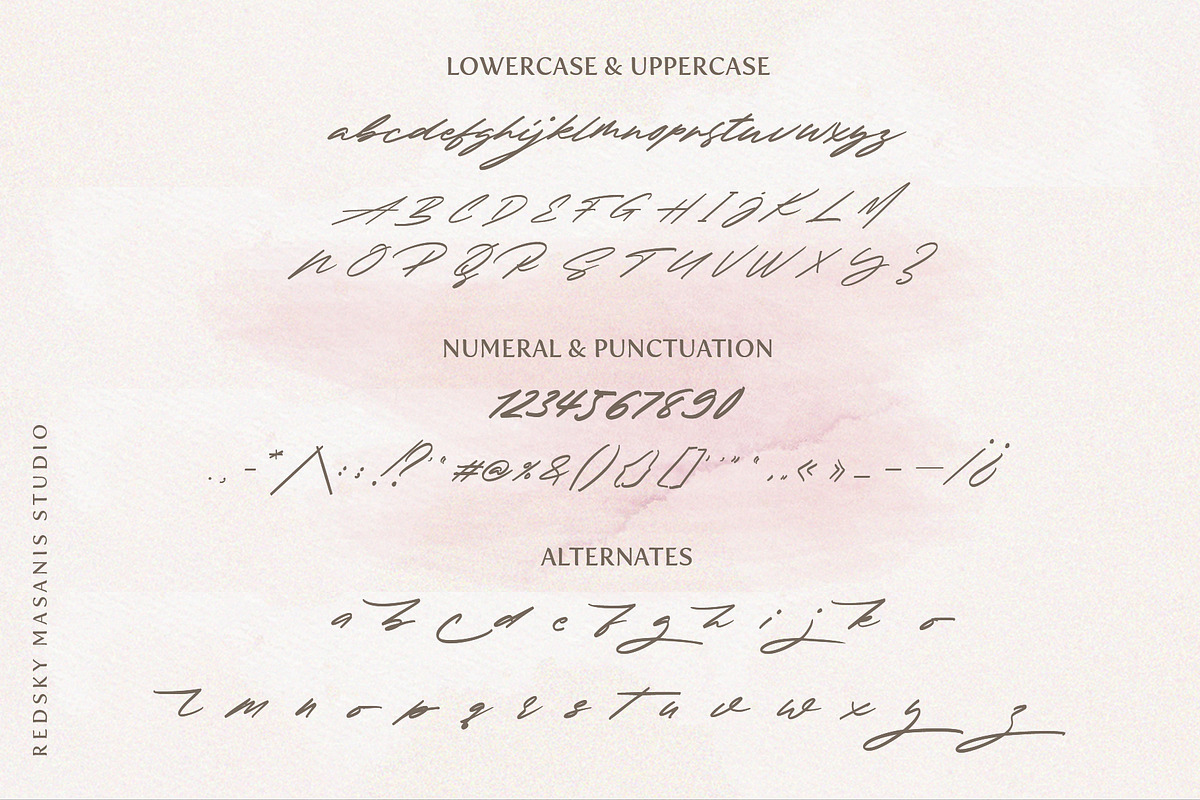 LOWERCASE & UPPERCASE
abcdefghijklmnopqrstuvwxyz
A B C D E F G H I J K L M
N O P Q R S T U V W X Y Z
NUMERAL & PUNCTUATION
1234567890
. , - * / \ : ; . ! ? ' " # @ % & ( ) { } [ ] ' ' " " ‚ „ « » _ – — / ¿
ALTERNATES
a b c d e f g h i j k o
l m n o p q r s t u v w x y z
REDSKY MASANIS STUDIO